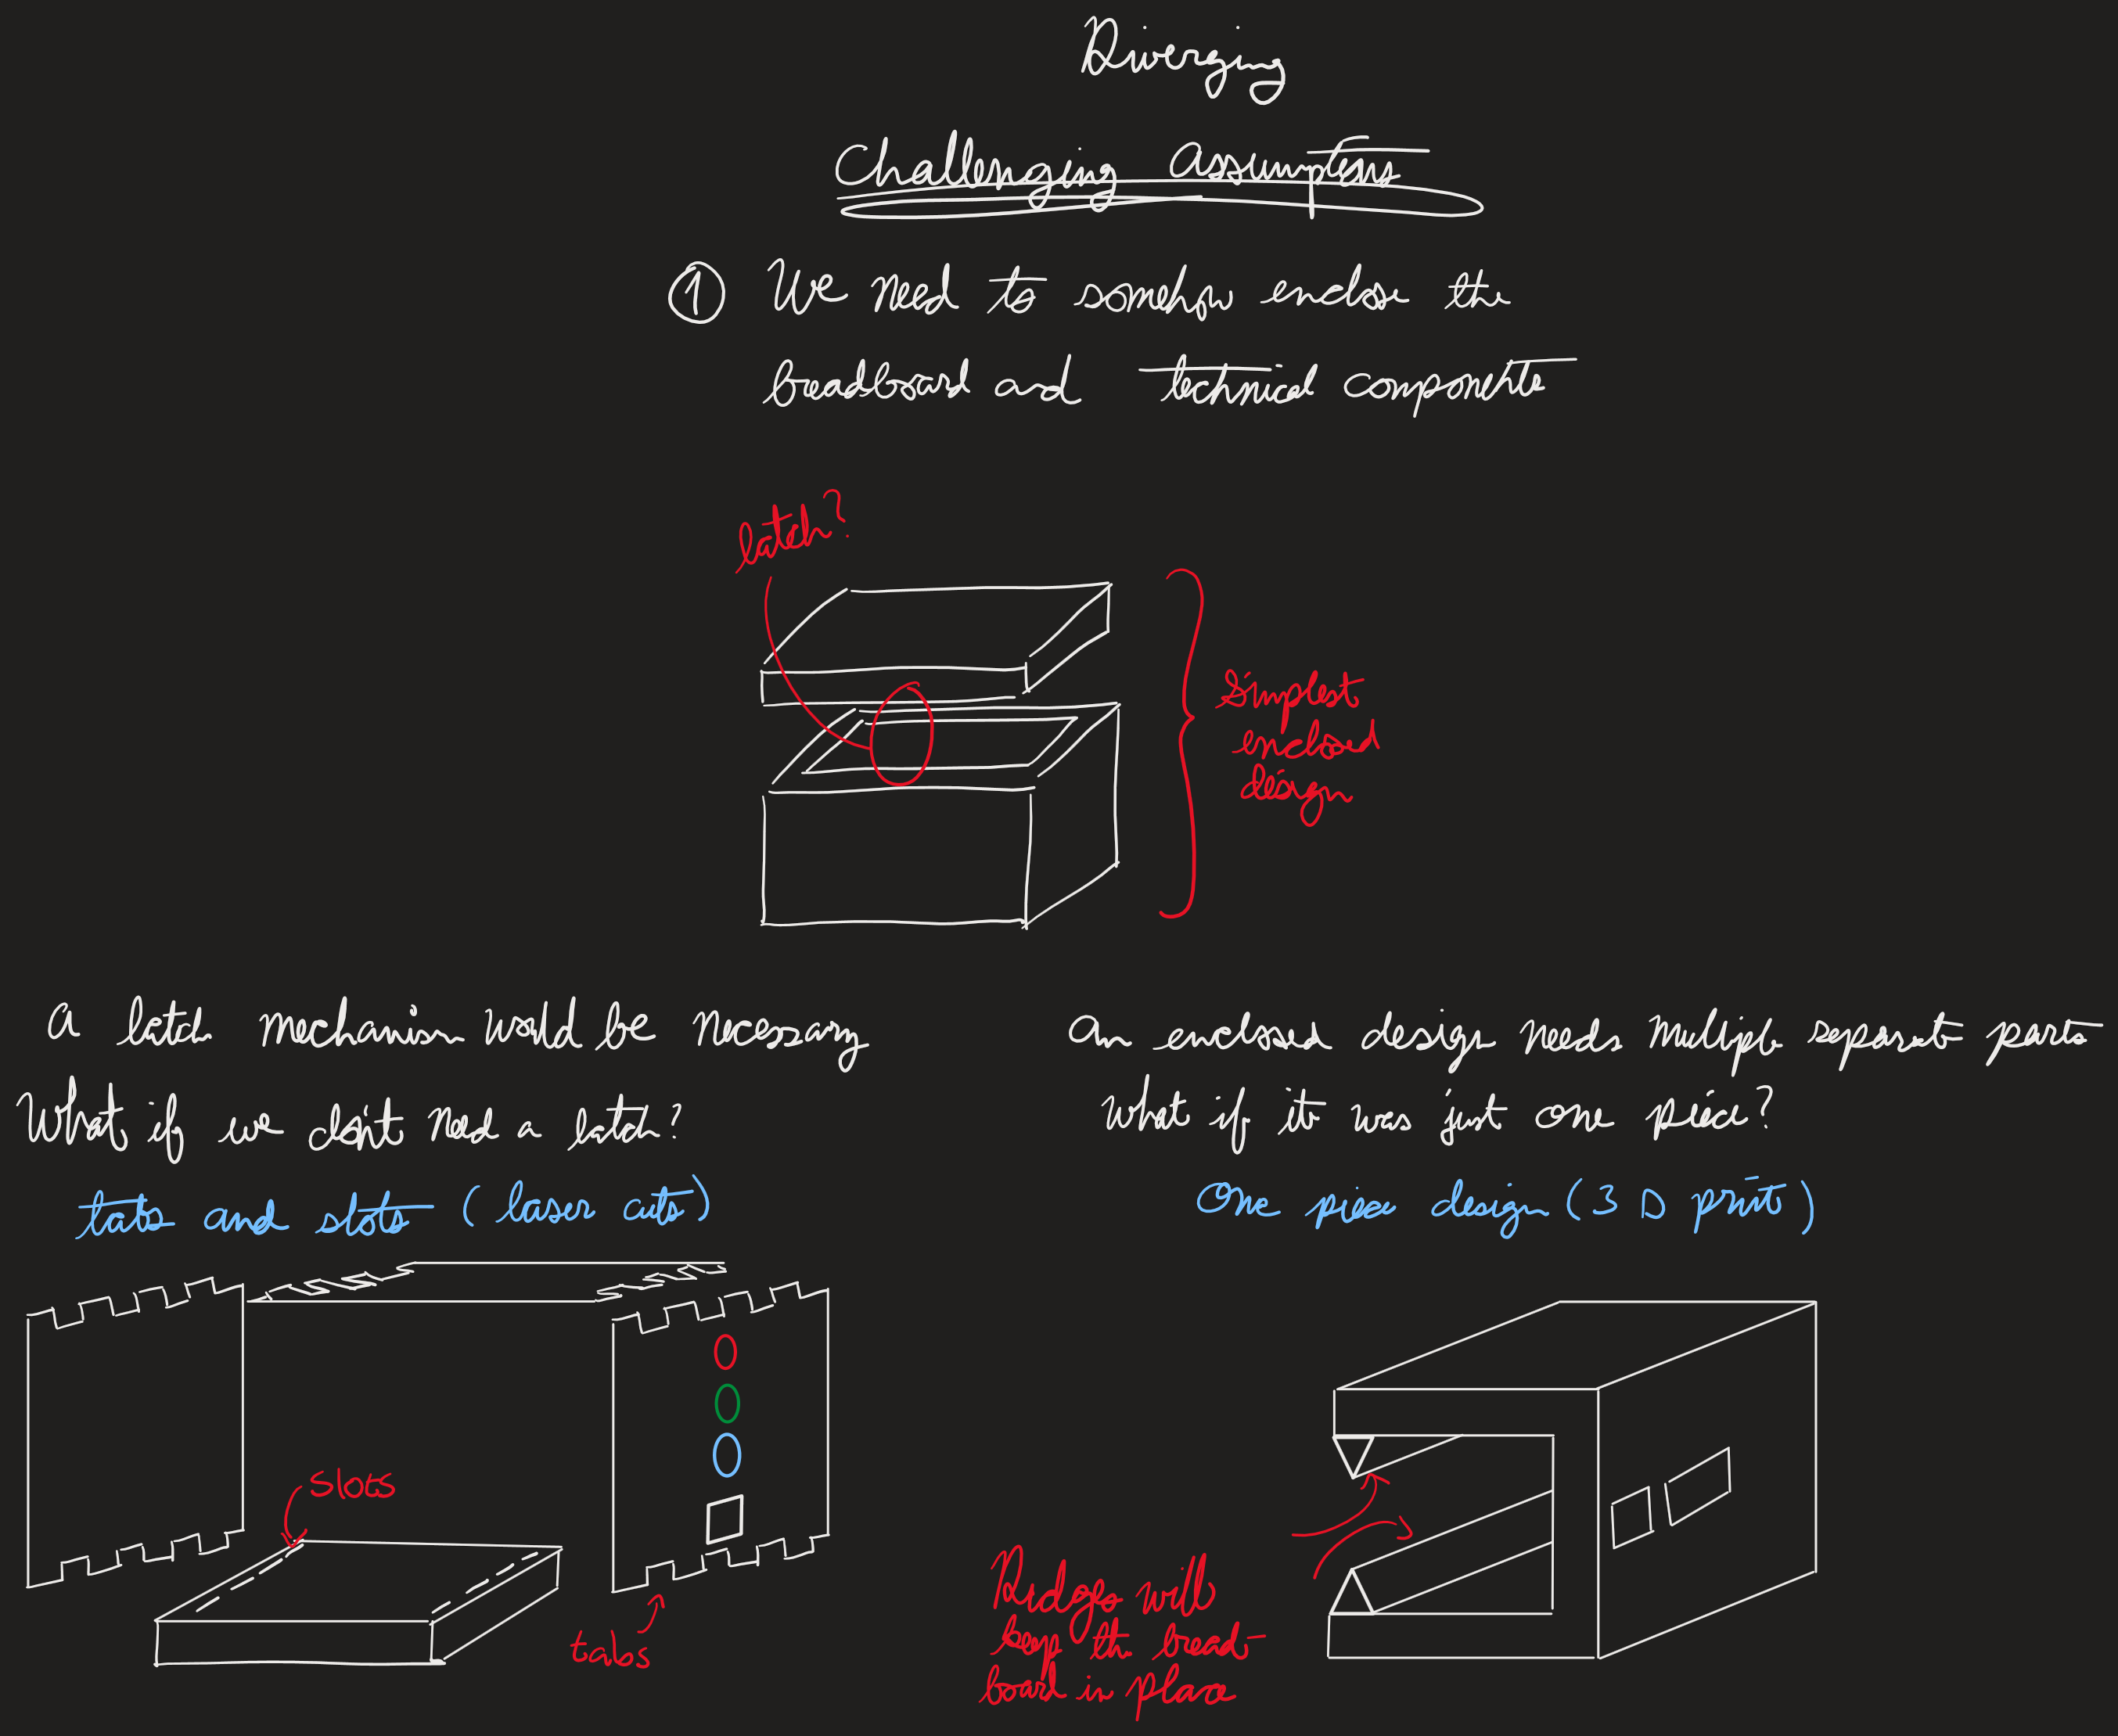 Diverging
Challenging assumptions
① We need to somehow enclose the
breadboard and technical components
latch?
Simplest
enclosed
design
A latch mechanism would be necessary
What if we don't need a latch?
tabs and slots (laser cuts)
slots
tabs
An enclosed design needs multiple separate parts
What if it was just one piece?
One piece design (3D print)
Ridges will
keep the bread-
board in place